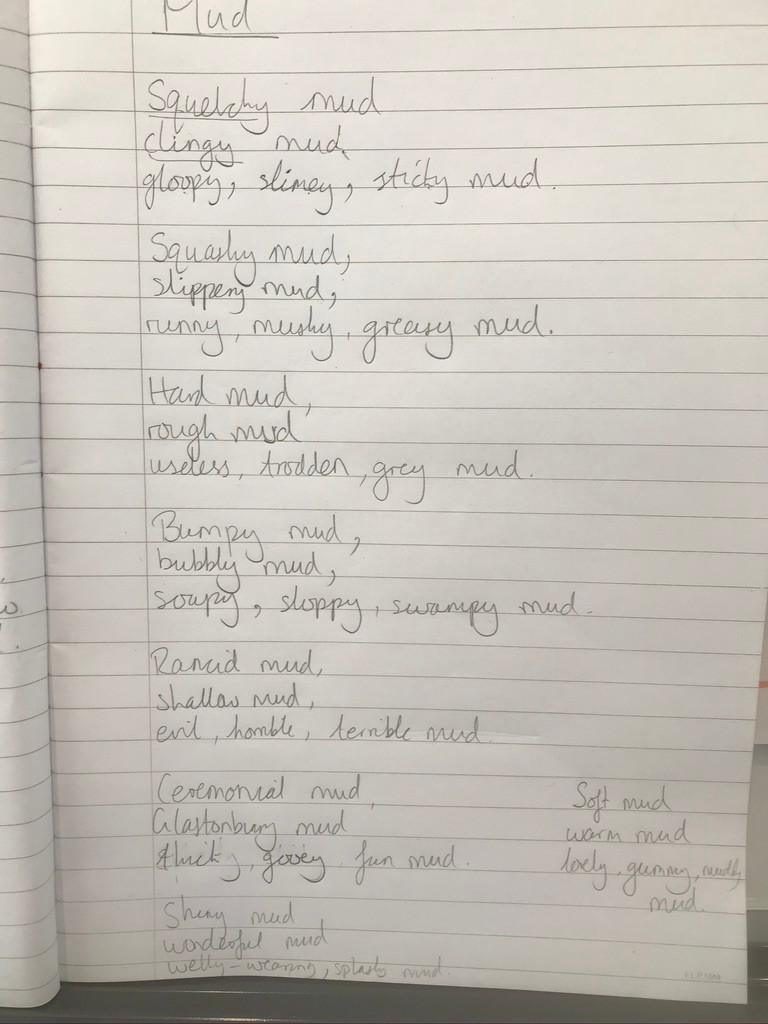 Mud
Squelchy mud
clingy mud,
gloopy, slimey, sticky mud.
Squashy mud,
slippery mud,
runny, mushy, greasy mud.
Hard mud,
rough mud
useless, trodden, grey mud.
Bumpy mud,
bubbly mud,
soupy, sloppy, swampy mud.
Rancid mud,
shallow mud,
evil, horrible, terrible mud.
Ceremonial mud,
Glastonbury mud
thick, gooey fun mud.
Shiny mud
wonderful mud
welly-wearing, splashy mud.
Soft mud
warm mud
lovely, gummy, muddy
mud.